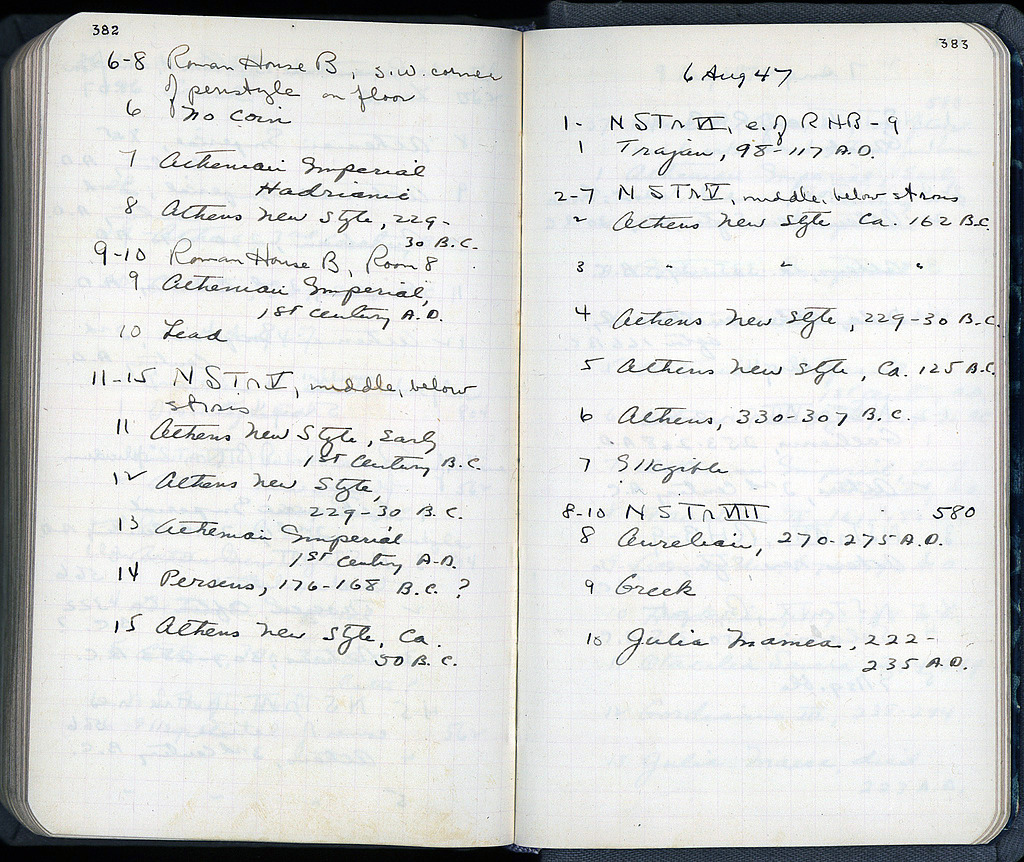 382
6-8 Roman House B, s.w. corner
of peristyle on floor
6 No coin
7 Athenian Imperial
Hadrianic
8 Athens New Style, 229-
30 B.C.
9-10 Roman House B, Room 8
9 Athenian Imperial,
1st Century A.D.
10 Lead
11-15 N S Tr V, middle, below
strosis
11 Athens New Style, Early
1st Century B.C.
12 Athens New Style,
229-30 B.C.
13 Athenian Imperial
1st Century A.D.
14 Perseus, 176-168 B.C. ?
15 Athens New Style, Ca.
50 B.C.
383
6 Aug 47
1- N S Tr VI, e. of R H B - 9
1 Trajan, 98-117 A.D.
2-7 N S Tr V, middle, below strosis
2 Athens New Style Ca. 162 B.C.
3 " " "
4 Athens New Style, 229-30 B.C.
5 Athens New Style, Ca. 125 B.C.
6 Athens, 330-307 B.C.
7 Illegible
8-10 N S Tr VIII 580
8 Aurelian, 270-275 A.D.
9 Greek
10 Julia Mamea, 222-
235 A.D.